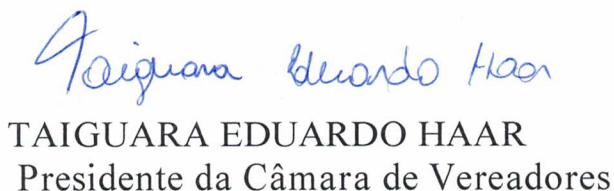 Taiguara Eduardo Haar
TAIGUARA EDUARDO HAAR
Presidente da Câmara de Vereadores